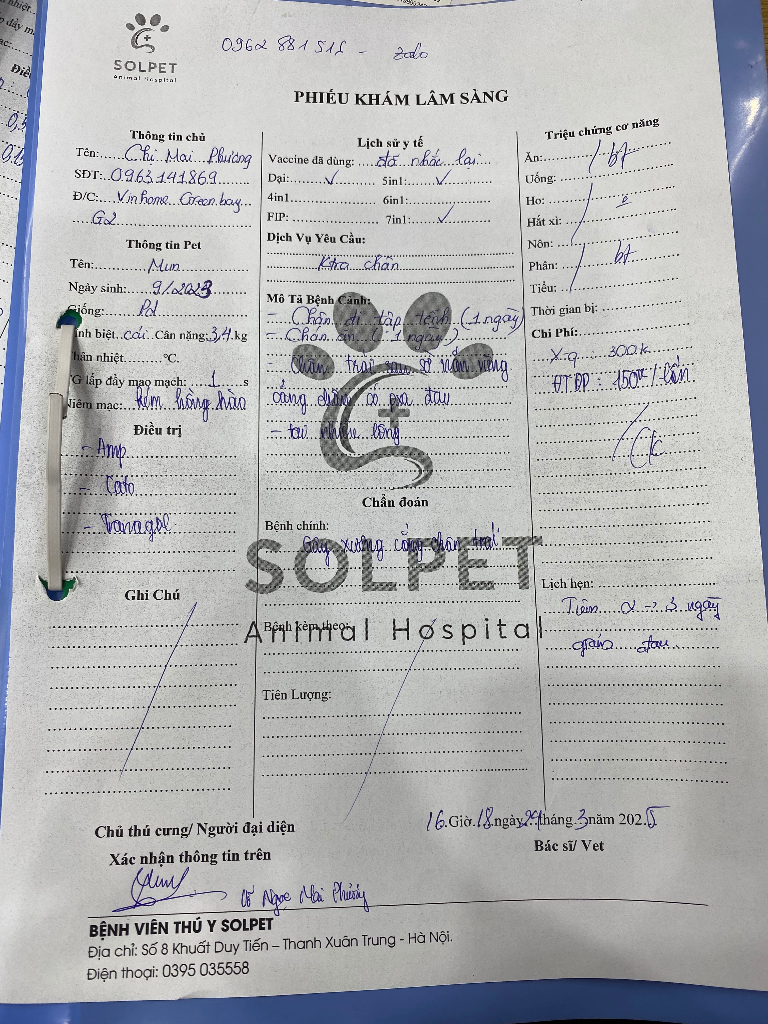 SOLPET
animal hospital
0962 881 515 - Zalo
PHIẾU KHÁM LÂM SÀNG
Thông tin chủ
Tên: Chị Mai Phương
SĐT: 0963141869
Đ/C: Vinhome Green bay
G2
Thông tin Pet
Tên: Mun
Ngày sinh: 9/2023
Giống: Pd
cái Cân nặng: 3,4 kg
nhiệt °C.
lấp đầy mao mạch: 1 s
Niêm mạc: kém hồng hào
Điều trị
- Amp
- Cato
-
Ghi Chú
Lịch sử y tế
Vaccine đã dùng: đã nhắc lại
Dại: ✓ 5in1: ✓
4in1 6in1:
FIP: 7in1: ✓
Dịch Vụ Yêu Cầu:
Ktra chân
Mô Tả Bệnh Cảnh:
- Chân đi tập tễnh (1 ngày)
- (1 ngày)
- Chân trái sau sờ nắn vùng
cẳng chân có px đau
- tai
Chẩn đoán
Bệnh chính:
Gãy xương cẳng chân trái
SOLPET
Animal Hospital
Bệnh kèm theo:
Tiên Lượng:
Triệu chứng cơ năng
Ăn: bt
Uống:
Ho:
Hắt xì:
Nôn:
Phân: bt
Tiểu:
Thời gian bị:
Chi Phí:
X-q : 300k
ĐTBP : 150k / lần
Ck
Lịch hẹn:
Tiêm 2 -> 3 ngày
giảm đau
Chủ thú cưng/ Người đại diện
Xác nhận thông tin trên
Ngọc Mai Phương
16 Giờ 18 ngày 29 tháng 3 năm 2025
Bác sĩ/ Vet
BỆNH VIỆN THÚ Y SOLPET
Địa chỉ: Số 8 Khuất Duy Tiến – Thanh Xuân Trung - Hà Nội.
Điện thoại: 0395 035558